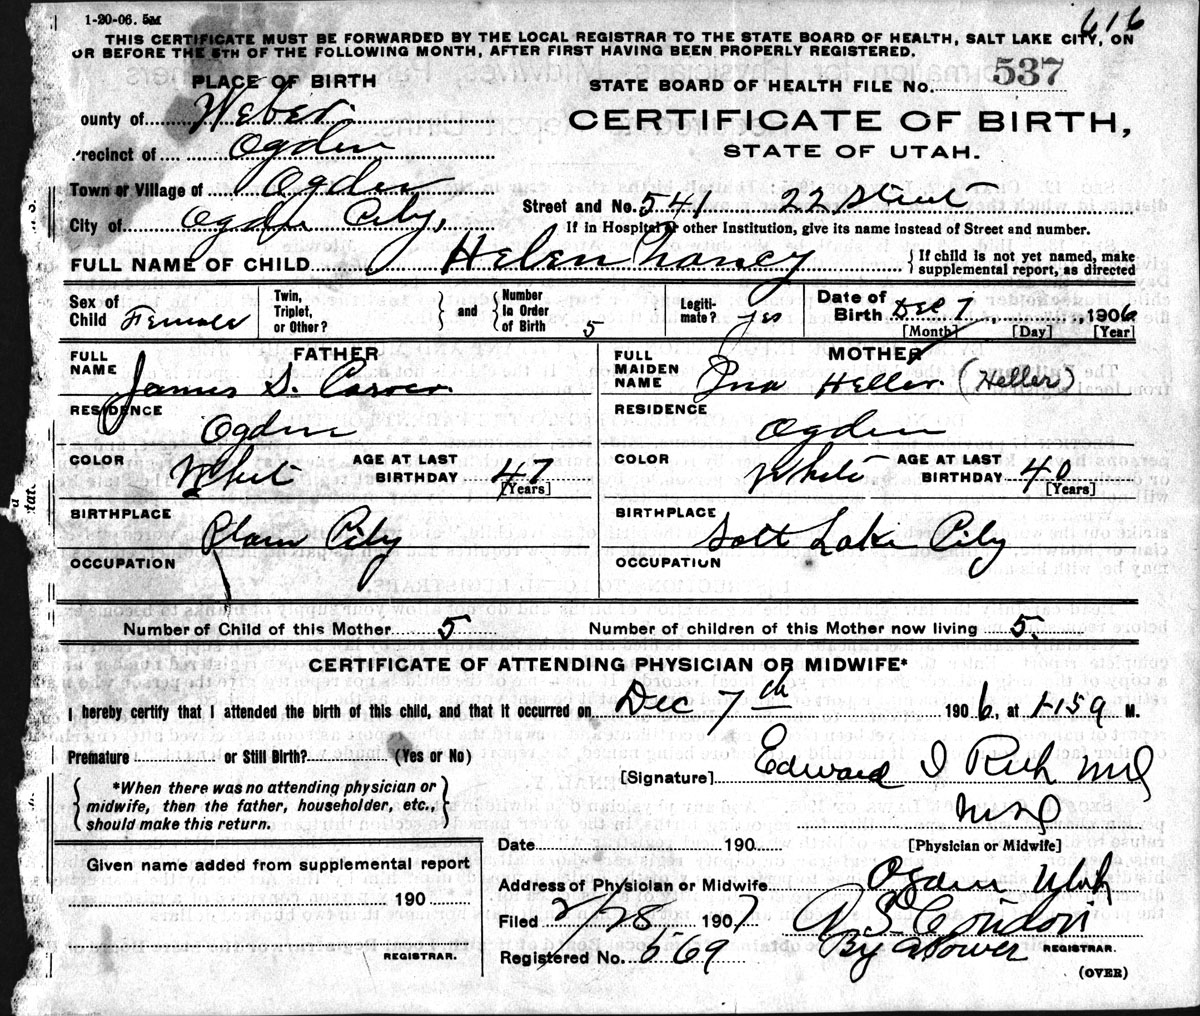 1-20-06. 5M
616
THIS CERTIFICATE MUST BE FORWARDED BY THE LOCAL REGISTRAR TO THE STATE BOARD OF HEALTH, SALT LAKE CITY, ON
OR BEFORE THE 5TH OF THE FOLLOWING MONTH, AFTER FIRST HAVING BEEN PROPERLY REGISTERED.
PLACE OF BIRTH
STATE BOARD OF HEALTH FILE No. 537
ounty of Weber
CERTIFICATE OF BIRTH,
recinct of Ogden
STATE OF UTAH.
Town or Village of Ogden
Street and No. 541 22 Street
City of Ogden City,
If in Hospital or other Institution, give its name instead of Street and number.
FULL NAME OF CHILD Helen
{If child is not yet named, make supplemental report, as directed
Sex of Child Female
Twin, Triplet, or Other? } and { Number In Order of Birth 5
Legiti-mate? yes
Date of Birth Dec 7, 1906
[Month] [Day] [Year]
FATHER
FULL NAME James S. Carver
MOTHER
FULL MAIDEN NAME Ina Heller. (Heller)
RESIDENCE Ogden
RESIDENCE Ogden
COLOR White AGE AT LAST BIRTHDAY 47 [Years]
COLOR White AGE AT LAST BIRTHDAY 40 [Years]
BIRTHPLACE Plain City
BIRTHPLACE Salt Lake City
OCCUPATION
OCCUPATION
Number of Child of this Mother 5
Number of children of this Mother now living 5.
CERTIFICATE OF ATTENDING PHYSICIAN OR MIDWIFE*
I hereby certify that I attended the birth of this child, and that it occurred on Dec 7th 1906, at M.
Premature or Still Birth? (Yes or No)
[Signature] Edward I Rich MD
*When there was no attending physician or
midwife, then the father, householder, etc.,
should make this return.
MD
[Physician or Midwife]
Date 190
Given name added from supplemental report
190
REGISTRAR.
Address of Physician or Midwife Ogden Utah
Filed 2/28, 1907
Condon
Registered No. 569
By
REGISTRAR.
(OVER)